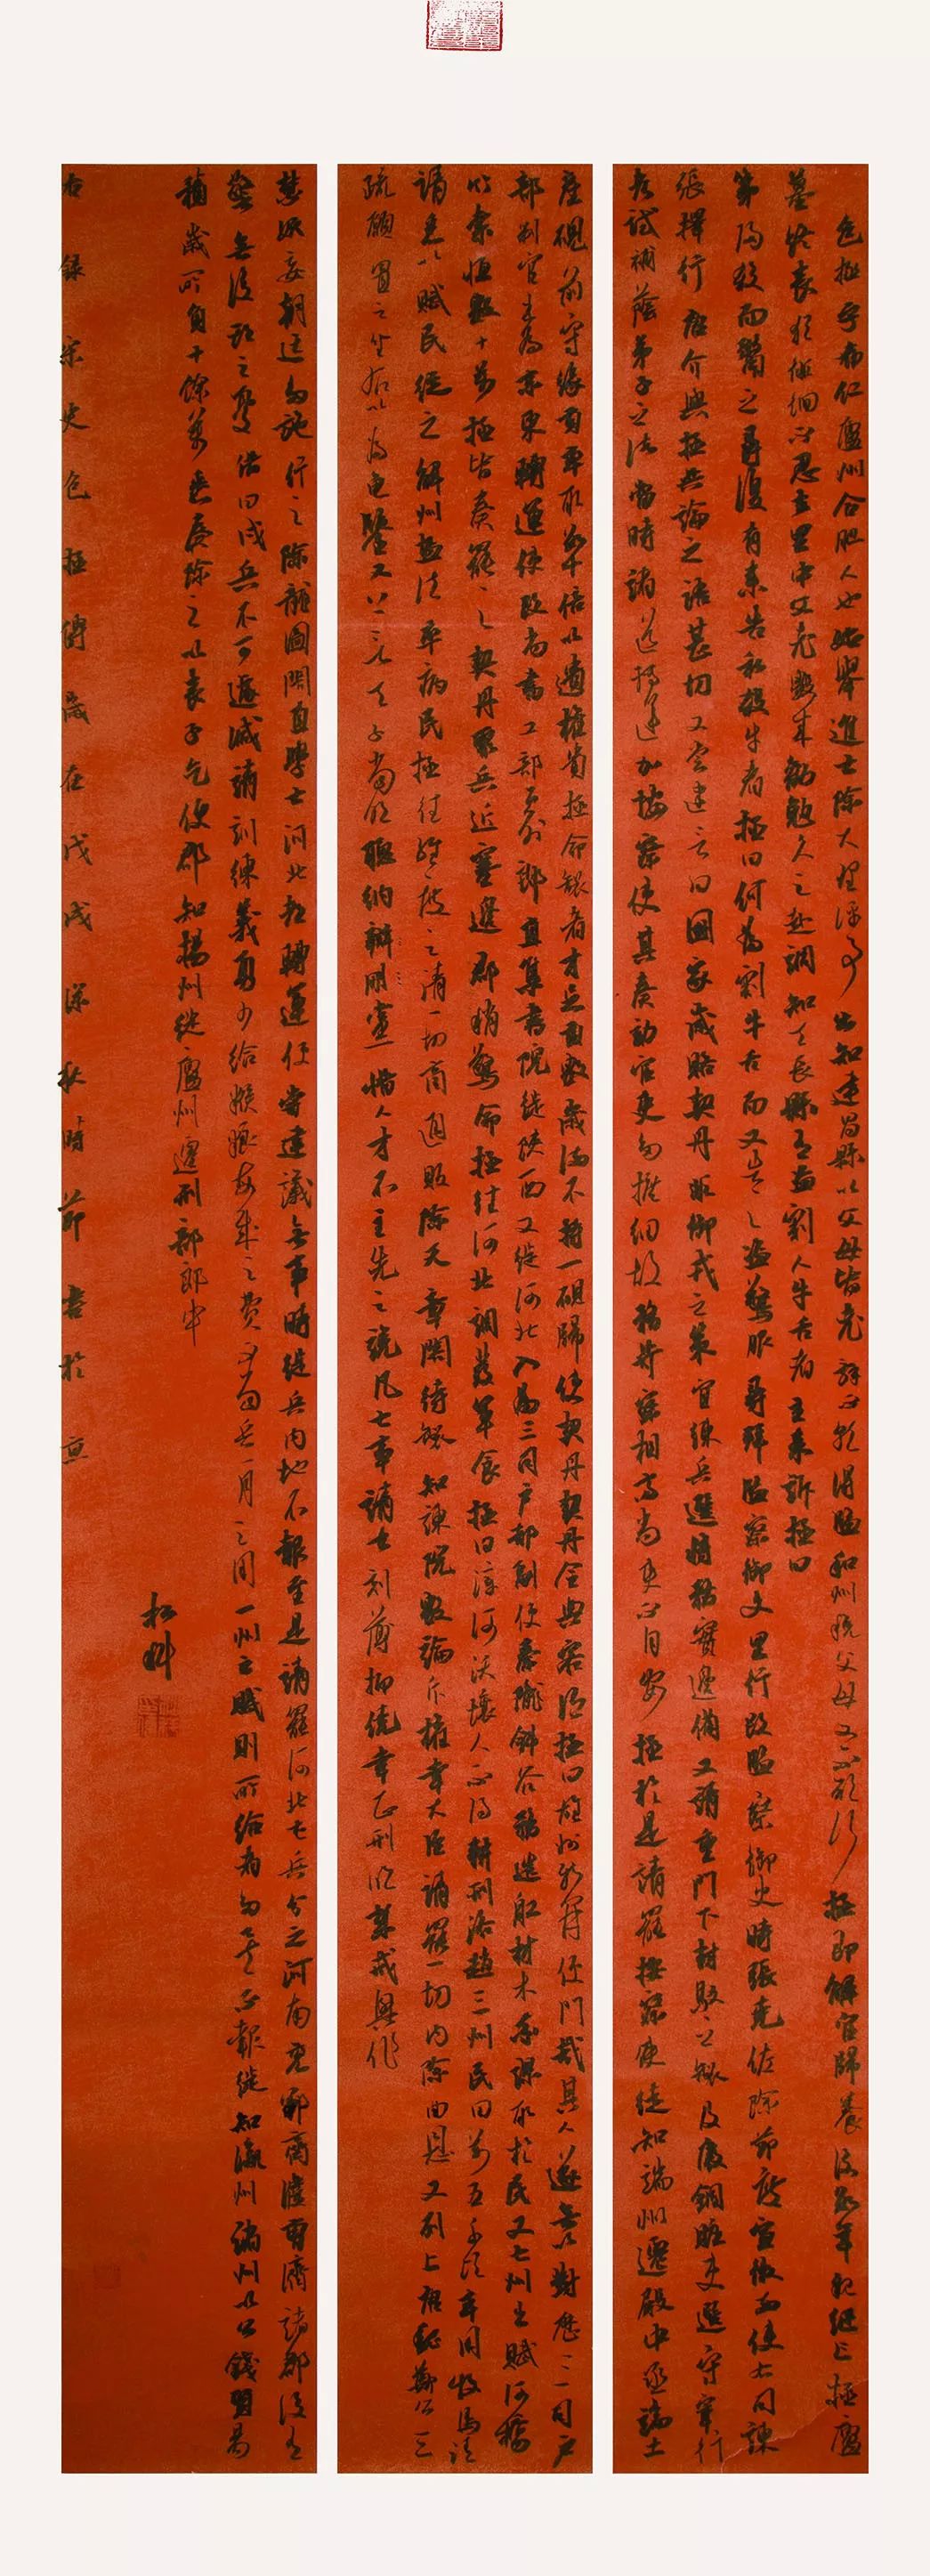 包拯字希仁廬州合肥人也始舉進士除大理評事出知建昌縣以父母皆老辭不就得監和州稅父母又不欲行拯即解官歸養後數年親繼亡拯廬
墓終喪猶徘徊不忍去里中父老數來勸勉久之赴調知天長縣有盜割人牛舌者主來訴拯曰
第歸殺而鬻之尋復有來告私殺牛者拯曰何為割牛舌而又告之盜驚服尋拜監察御史里行改監察御史時張堯佐除節度宣徽兩使右司諫
張擇行唐介與拯共論之語甚切又嘗建言曰國家歲賂契丹非御戎之策宜練兵選將務實邊備又請重門下封駁之制及廢錮贓吏選守宰行
考試補蔭弟子之法當時諸道轉運加按察使其奏劾官吏多摭細故務苛察相高尚吏不自安拯於是請罷按察使徙知端州遷殿中丞端土
產硯前守緣貢率取數十倍以遺權貴拯命製者才足貢數歲滿不持一硯歸使契丹契丹令典客謂拯曰雄州新開便門哉其人遂無以對歷三司戶
部判官出為京東轉運使改尚書工部員外郎直集賢院徙陝西又徙河北入為三司戶部副使秦隴斜谷務造船材木率課取於民又七州出賦河橋
竹索恆數十萬拯皆奏罷之契丹聚兵近塞邊郡稍驚命拯往河北調發軍食拯曰漳河沃壤人不得耕邢洺趙三州民田萬五千頃率用牧馬請
請悉以賦民從之解州鹽法率病民拯往經度之請一切商通販除天章閣待制知諫院數論斥權幸大臣請罷一切內除曲恩又列上唐魏鄭公三
疏願置之坐右以為龜鑒又上言天子當明聽納辨朋黨惜人才不主先入之說凡七事請去刻薄抑僥幸正刑明禁戒興作
禁妖妄朝廷多施行之除龍圖閣直學士河北都轉運使嘗建議無事時徙兵內地不報至是請罷河北屯兵分之河南兗鄆齊濮曹濟諸郡設有
警無後期之憂借曰戍兵不可遽減請訓練義勇少給糇糧每歲之費不當屯兵一月之用一州之賦則所給者多矣不報徙知瀛州諸州以公錢貿易
積歲所負十餘萬悉奏除之以喪子乞便郡知揚州徙廬州遷刑部郎中
右錄宋史包拯傳歲在戊戌深秋時節書於京